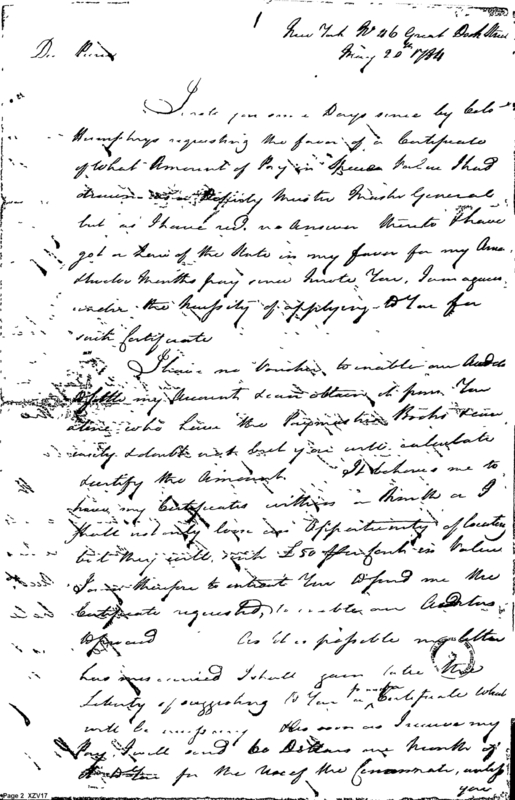 New York No 46 Great Dock Street
May 20th 1784
Dr Pierce
I wrote you some Days since by Colo
Humphrys requesting the favor of a Certificate
of What Amount of Pay in Specie Value I had
drawn as a Deputy Muster Master General
but as I have recd no Answer thereto & have
got a of the State in my favor for my
twelve Months pay since I wrote You, I am again
under the Necessity of applying to You for
such Certificate
I have no Voucher to enable our Auditor
to settle my Account & can obtain it from You
alone who have the Paymasters Books &
& doubt not but you will calculate
& certify the Amount. It behoves me to
have my Certificates within a Month or I
shall not only loose an Opportunity of locating
but they will £50 in Value
I am therefore to intreat You to send me the
Certificate requested, to enable our Auditors
to proceed As it is possible my letter
has miscarried I shall again take the
Liberty of suggesting to You Certificate what
will be necessary As soon as I receive my
Pay I will send 60 Dollars one Month of
for the Use of the Cincinnati, unless
you
Page 2 XZV17